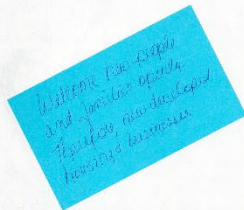 Welcome new people
and families openly.
Therefore, new developed
housing & businesses